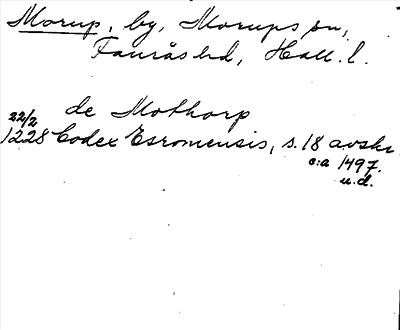 Morup, by, Morups sn,
Fauråshd, Hall. l.
de Mothorp
22/2
1228 Codex Esromensis, s. 18 avskr
c:a 1497.
u.d.